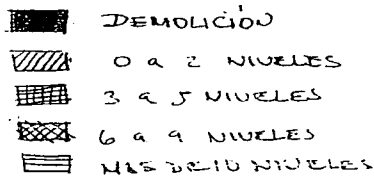 DEMOLICIÓN
0 a 2 NIVELES
3 a 5 NIVELES
6 a 9 NIVELES
MAS DE 10 NIVELES